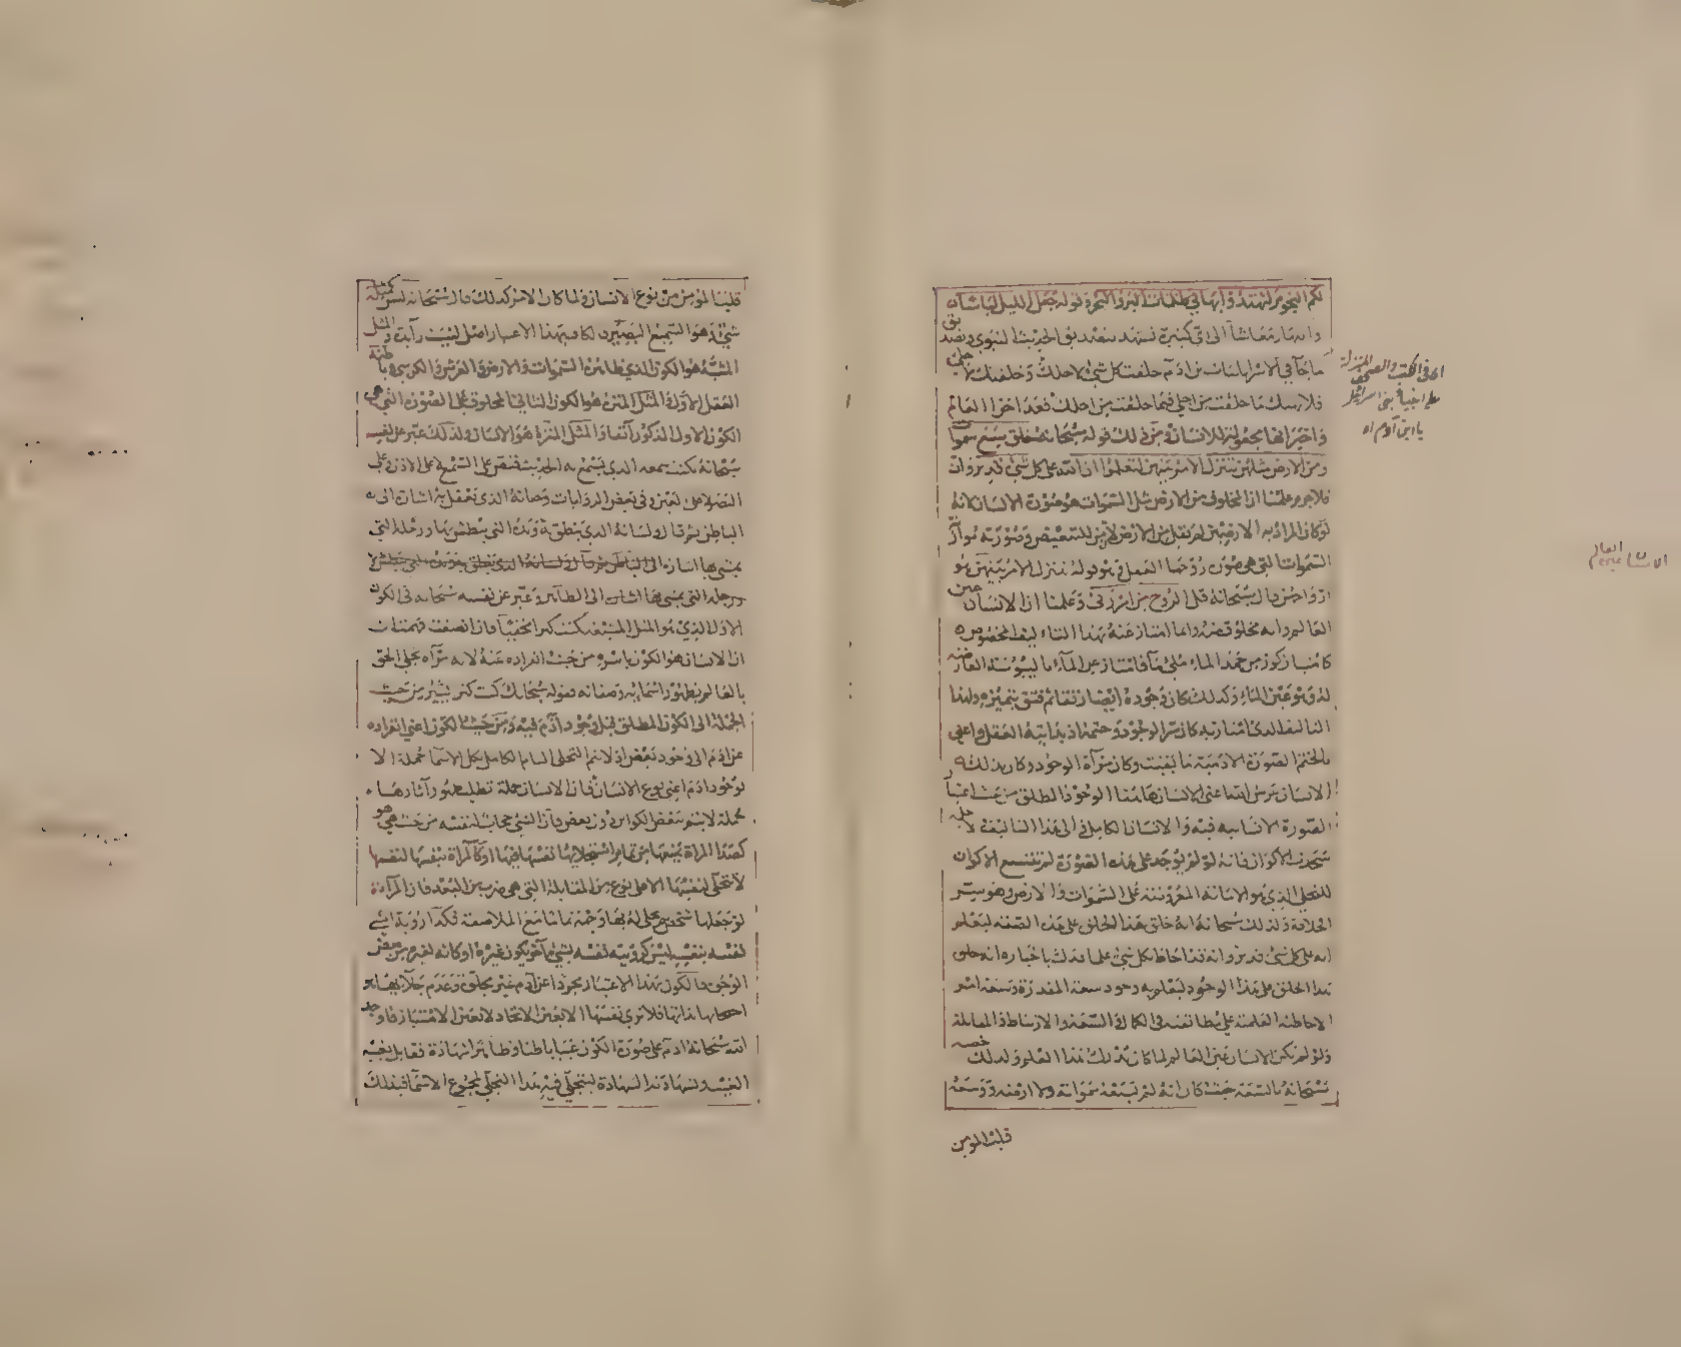 لكم النجوم لتهتدوا بها في ظلمات البر والبحر وقوله جعل الليل لباسا
والنهار معاشا الى آي كثيرة تشهد بصدق الحديث النبوي وبصدق
ما جآ في الاسرائيليات بن ادم خلقت كل شي لاجلك وخلقتك لاجلي
فلا ما خلقت من اجلي فيما خلقت من اجلك فعدا العالم
واخبر انها مجعولة للانسان ومن ذلك قوله سبحانه خلق سبع سموات
ومن الارض مثلهن يتنزل الامر بينهن لتعلموا ان الله على كل شي قدير وان
فلا جرم علمنا ان المخلوق من الارض مثل السموات هو صورة الانسان كانه
لو كان المراد به الارضين لم يقل من الارض لان من للتبعيض وصورته
السموات التي هي صور روحها الفعل في قوله يتنزل الامر بينهن هو
ارواحهن قال سبحانه قل الروح من امر ربي وعلمنا ان الانسان عين
العالم وانه مخلوق منه وانما امتاز عنه بهذا التا ليف المخصوص
كامتياز كوز من جمد الماء ملئ مآ فامتاز عن المآء باليبوسة العارضة
له وهو عين الماء وكذلك كان وجوده ايضا رتقا ثم فتق بتميزه ولهذا
التاليف الذي امتاز به كان سر الوجود وختمه اذ بدايته العقل واعني
بالختم الصورة الادمية ما بقيت وكان مرآة الوجود وكان بذلك
الانسان اعني الانسان هاهنا الوجود المطلق من حيث
الصورة الانسانيه فيه والانسان الكامل في الى هذا التاليف لاجله
سجدت الاكوان فانه لو لم يوجد على هذه الصورة لم تتسع الاكوان
للتجلي الذي هو الامانة المعروضة على السموات والارض وهو سر
الخلافة وذلك سبحانه انه خلق هذا الخلق على هذه الصفة ليعلم
انه على كل شي قدير وانه قد احاط بكل شي علما فدل باخباره انه خلق
هذا الخلق على هذا الوجود ليعلم به وجود سعة المقدرة وسعة امر
الاحاطة العلمية على في الكمال والسعة والارتباط والمقابلة
ولو لم يكن الانسان عين العالم لما كان يدرك هذا العلم ولذلك خصه
سبحانه بالسعة حيث كان انه لم تسعه سمواته ولا ارضه ووسعه
قلب المومن
اى فى الكتب والصحف المنزلة
على انبياء بنى اسرائيل
يا ابن آدم اه
الانسان عين العالم
قلب المؤمن من نوع الانسان ولما كان الامر كذلك قال سبحانه ليس كمثله
شي وهو السميع البصير لاعتبار اصل والمثل
المشبه هو الكون الذي ظاهره السموات والارض والعرش والكرسي وباطنه
العقل الاول والمثل المنزه هو الكون الثاني المخلوق على الصورة التي هي
الكون الاول المذكور آنفا والمثل المنزه هو الانسان ولذلك عبر عن نفسه
سبحانه بكنت سمعه الذي يسمع به الحديث فنص على السمع لا على الاذن وعلى
البصر لا على العين وفي بعض الروايات وجنانه الذي يعقل به اشارة الى
الباطن ثم قال ولسانه الذي ينطق به ويده التي يبطش بها ورجله التي
يمشي بها اشارة الى الباطن ثم قال ولسانه الذي ينطق به ويده التي يبطش
ورجله التي يمشي بها اشارة الى الظاهر وعبر عن نفسه سبحانه في الكون
الاول الذي هو المثل المشبه بكنت كنزا مخفيا فان انصفت فهمت ان
ان الانسان هو الكون باسره من حيث انفراده عنه لانه مرآة تجلي الحق
بالعالم بظهور اسمائه وصفاته فقوله سبحانه كنت كنز يشير من حيث
الجملة الى الكون المطلق قبل وجود آدم فيه ومن حيث الكون اعني انفراده
عن ادم الى وجود بعض اذ لا يتم التجلي التام الكامل بكل الاسما جملة الا
بوجود ادم اعني نوع الانسان فان الانسان جملة تطلب ظهور آثارها
بجملة لا ببعض الكواين دون بعض فان الشي حجاب لنفسه من حيث هو
كصدا المراة يمنعها من تمام استجلائها نفسها فيها او كالمرآة بنفسها لنفسها
لا تتجلى لنفسها الا على نوع من المقابلة التي هي ضرب من البعد فان المرآة
لو جعلها شخص على وجهه تماما مع الملاصقة فكذا رؤية الشي
نفسه بنفسه ليس كرويته نفسه بشي ما آخر يكون غيره او كانه لغيره من بعض
الوجوه فالكون بهذا الاعتبار مجردا عن آدم غير مجلو وعدم جلائها هو
احتجابها بذاتها فلا ترى نفسها الا بعين الاتحاد لا بعين الامتياز فاوجد
الله سبحانه ادم على صورة الكون غيبا باطنا وظاهرا شهادة فقابل بغيبه
الغيب وبشهادته الشهادة ليتجلى فيه هذا التجلي بمجموع الاسما فبذلك